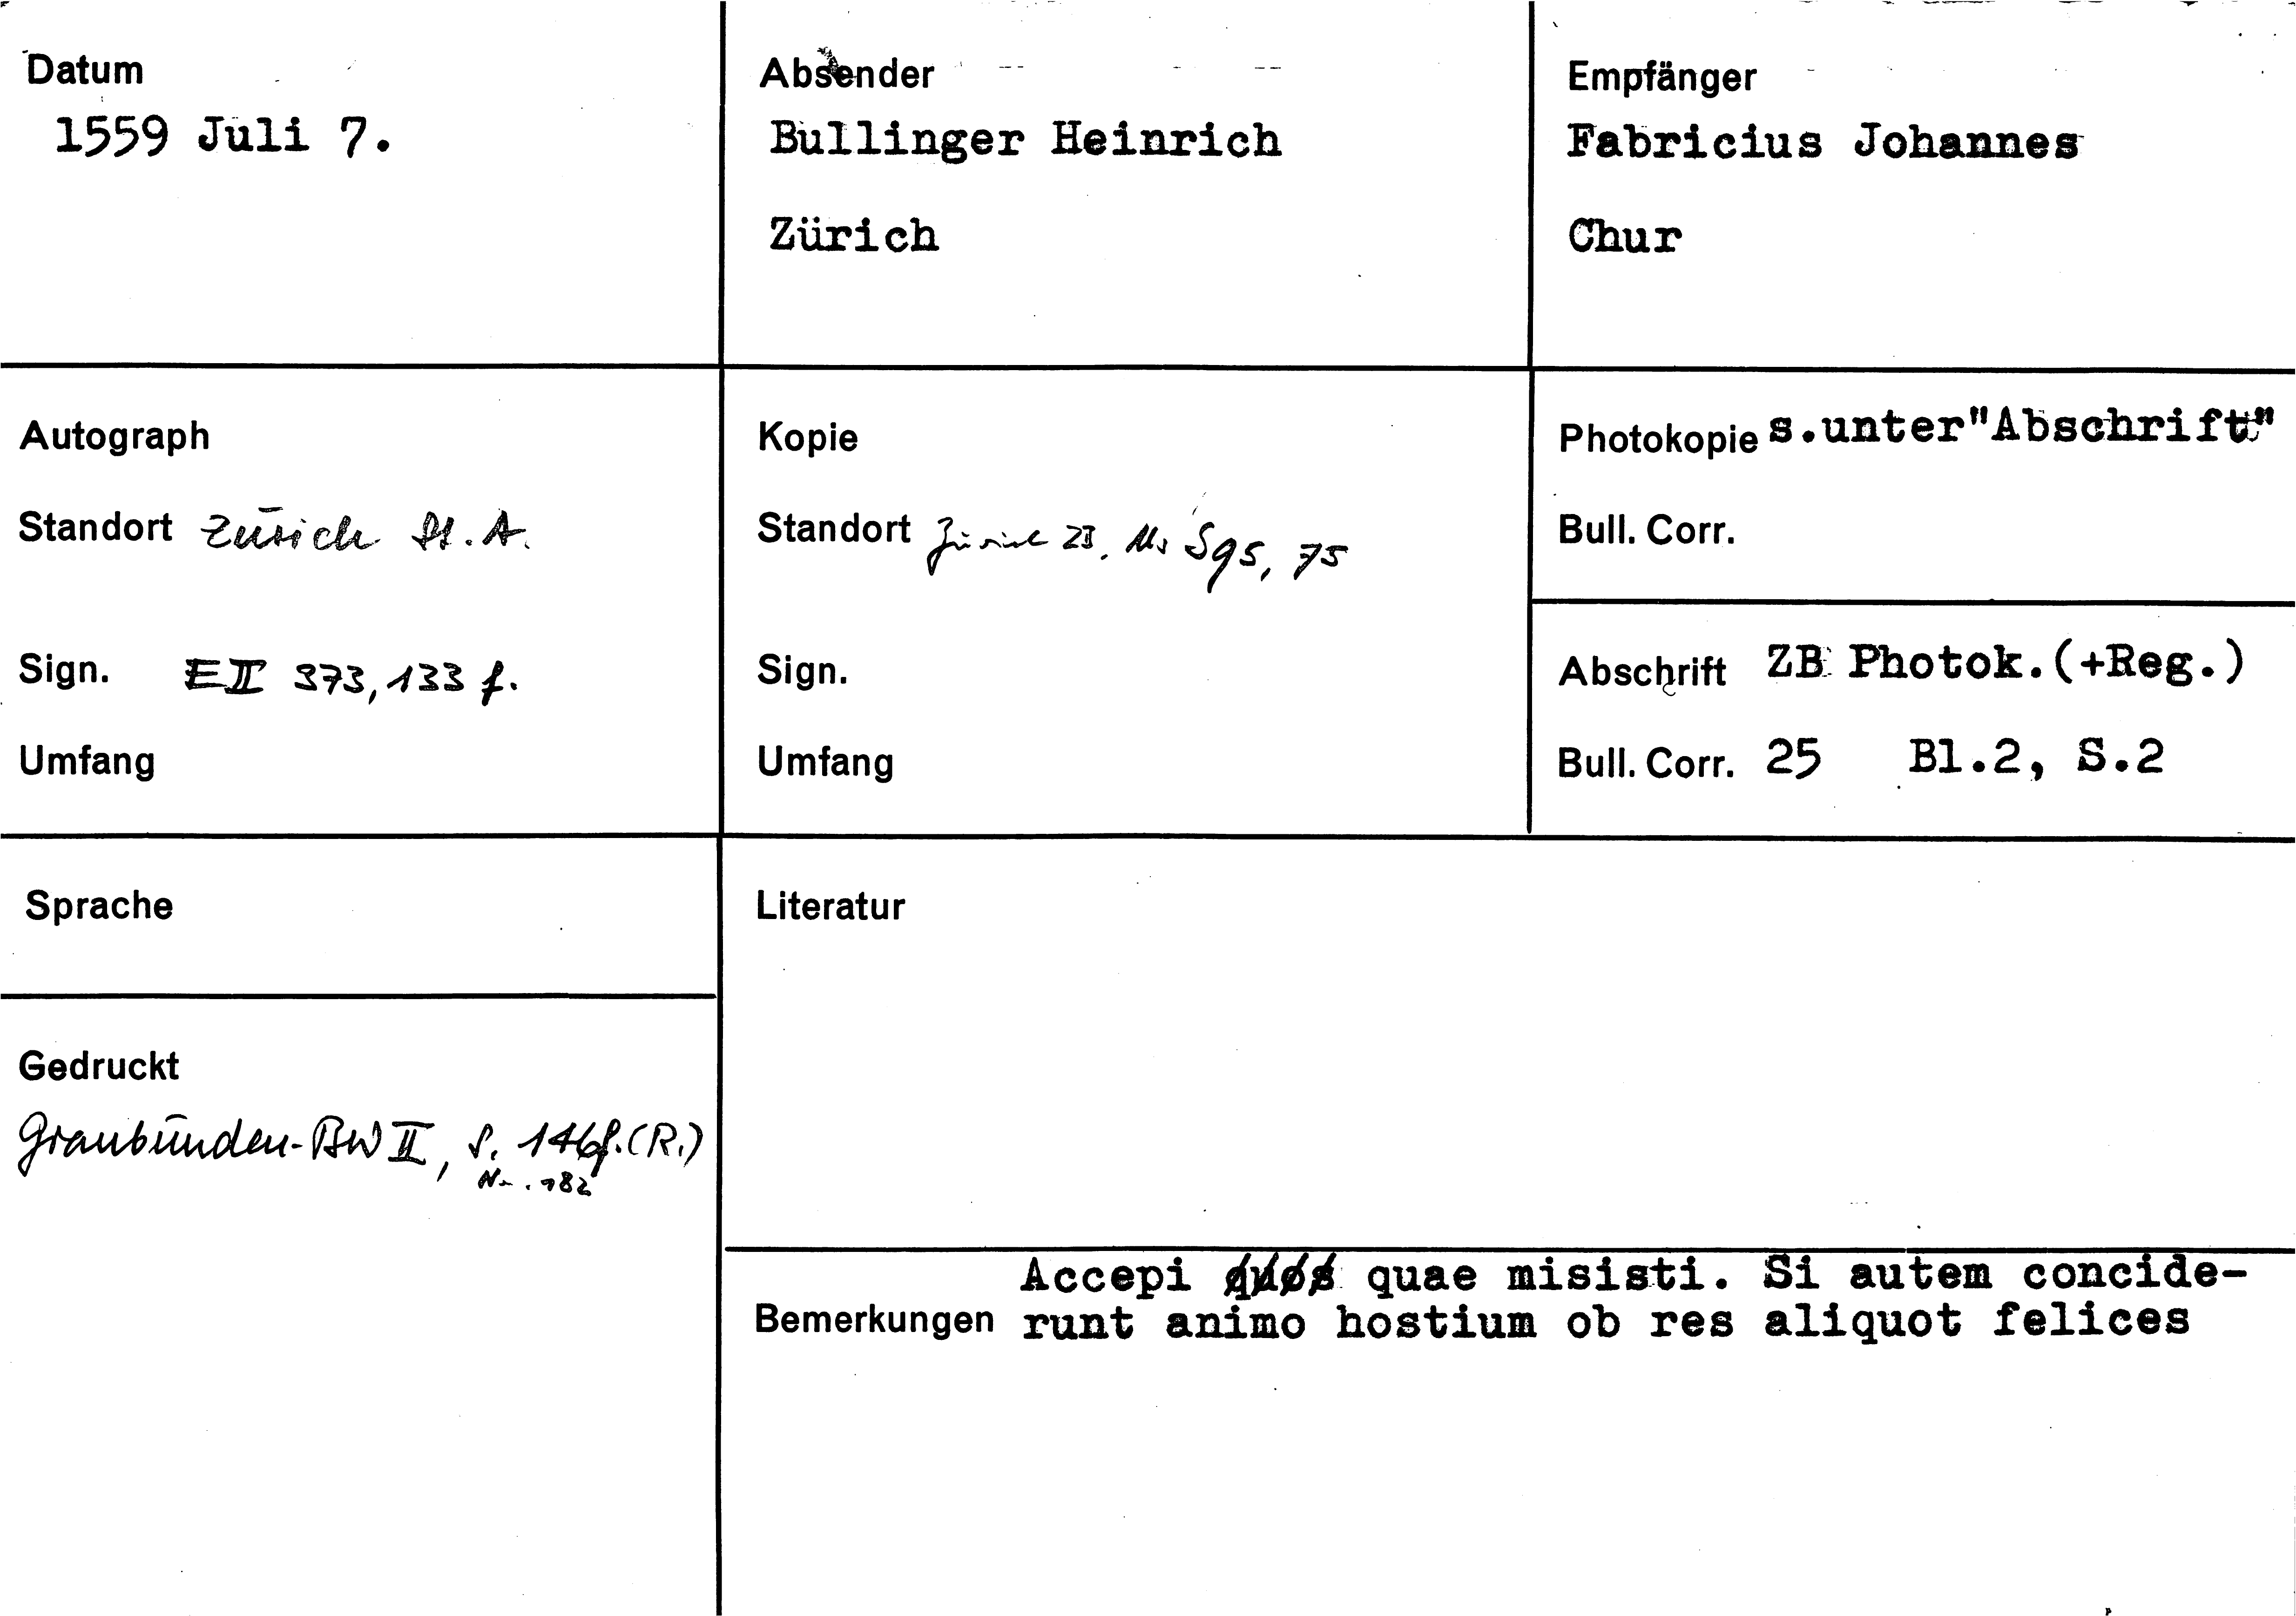 Datum
1559 Juli 7.
Absender
Bullinger Heinrich
Zürich
Empfänger
Fabricius Johannes
Chur
Autograph
Standort Zürich St. A.
Sign. E II 373, 133 f.
Umfang
Kopie
Standort Zürich ZB, Ms S 95, 75
Sign.
Umfang
Photokopie s.unter"Abschrift"
Bull. Corr.
Abschrift ZB Photok.(+Reg.)
Bull. Corr. 25 Bl.2, S.2
Sprache
Gedruckt
Graubünden-BW II, S. 146f. (R.)
Nr. 182
Literatur
Bemerkungen
Accepi quos quae misisti. Si autem concide-
runt animo hostium ob res aliquot felices